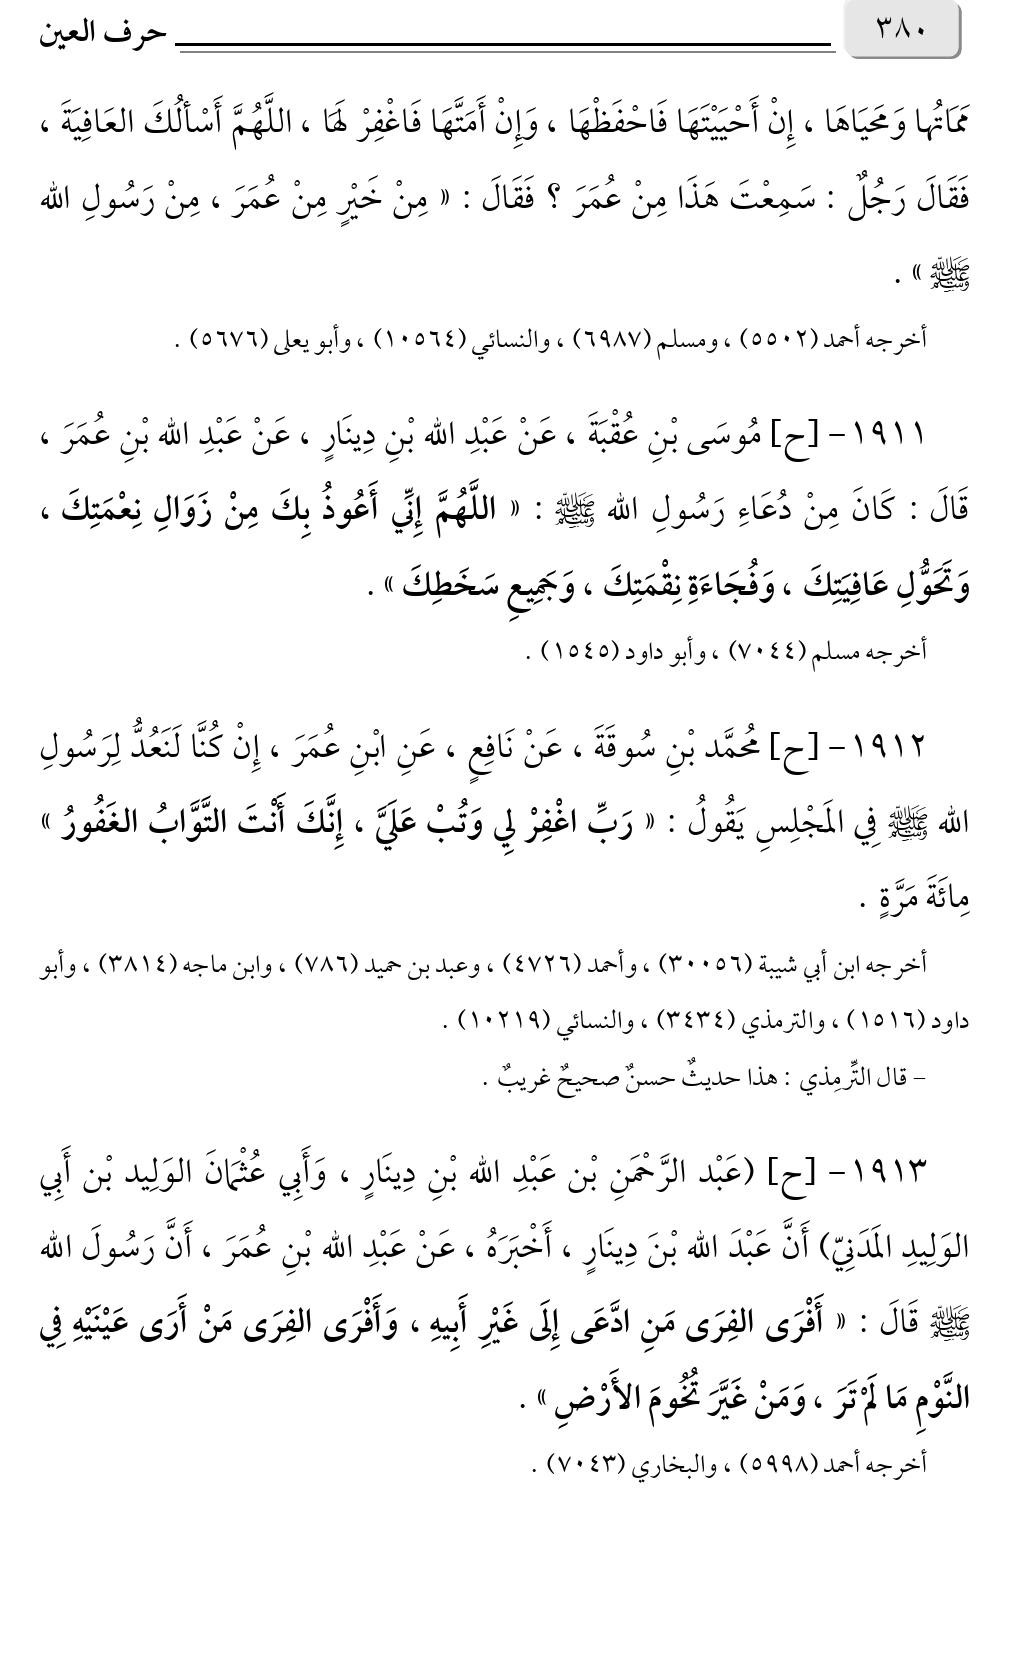 ٣٨٠
حرف العين
مَمَاتُها وَمَحيَاهَا ، إِنْ أَحْيَيْتَهَا فَاحْفَظْهَا ، وَإِنْ أَمَتَّهَا فَاغْفِرْ لهَا ، اللَّهُمَّ أَسْألُكَ العَافِيَةَ ،
فَقَالَ رَجُلٌ : سَمِعْتَ هَذَا مِنْ عُمَرَ ؟ فَقَالَ : « مِنْ خَيْرٍ مِنْ عُمَرَ ، مِنْ رَسُولِ الله
ﷺ » .
أخرجه أحمد (٥٥٠٢) ، ومسلم (٦٩٨٧) ، والنسائي (١٠٥٦٤) ، وأبو يعلى (٥٦٧٦) .
١٩١١- [ح] مُوسَى بْنِ عُقْبَةَ ، عَنْ عَبْدِ الله بْنِ دِينَارٍ ، عَنْ عَبْدِ الله بْنِ عُمَرَ ،
قَالَ : كَانَ مِنْ دُعَاءِ رَسُولِ الله ﷺ : « اللَّهُمَّ إِنِّي أَعُوذُ بِكَ مِنْ زَوَالِ نِعْمَتِكَ ،
وَتَحَوُّلِ عَافِيَتِكَ ، وَفُجَاءَةِ نِقْمَتِكَ ، وَجَمِيعِ سَخَطِكَ » .
أخرجه مسلم (٧٠٤٤) ، وأبو داود (١٥٤٥) .
١٩١٢- [ح] مُحمَّد بْنِ سُوقَةَ ، عَنْ نَافِعٍ ، عَنِ ابْنِ عُمَرَ ، إِنْ كُنَّا لَنَعُدُّ لِرَسُولِ
الله ﷺ فِي المَجْلِسِ يَقُولُ : « رَبِّ اغْفِرْ لِي وَتُبْ عَلَيَّ ، إِنَّكَ أَنْتَ التَّوَّابُ الغَفُورُ »
مِائَةَ مَرَّةٍ .
أخرجه ابن أبي شيبة (٣٠٠٥٦) ، وأحمد (٤٧٢٦) ، وعبد بن حميد (٧٨٦) ، وابن ماجه (٣٨١٤) ، وأبو
داود (١٥١٦) ، والترمذي (٣٤٣٤) ، والنسائي (١٠٢١٩) .
- قال التِّرمِذي : هذا حديثٌ حسنٌ صحيحٌ غريبٌ .
١٩١٣- [ح] (عَبْد الرَّحْمَنِ بْن عَبْدِ الله بْنِ دِينَارٍ ، وَأَبِي عُثْمَانَ الوَلِيد بْن أَبِي
الوَلِيدِ المَدَنِيّ) أَنَّ عَبْدَ الله بْنَ دِينَارٍ ، أَخْبَرَهُ ، عَنْ عَبْدِ الله بْنِ عُمَرَ ، أَنَّ رَسُولَ الله
ﷺ قَالَ : « أَفْرَى الفِرَى مَنِ ادَّعَى إِلَى غَيْرِ أَبِيهِ ، وَأَفْرَى الفِرَى مَنْ أَرَى عَيْنَيْهِ فِي
النَّوْمِ مَا لَمْ تَرَ ، وَمَنْ غَيَّرَ تُخُومَ الأَرْضِ » .
أخرجه أحمد (٥٩٩٨) ، والبخاري (٧٠٤٣) .